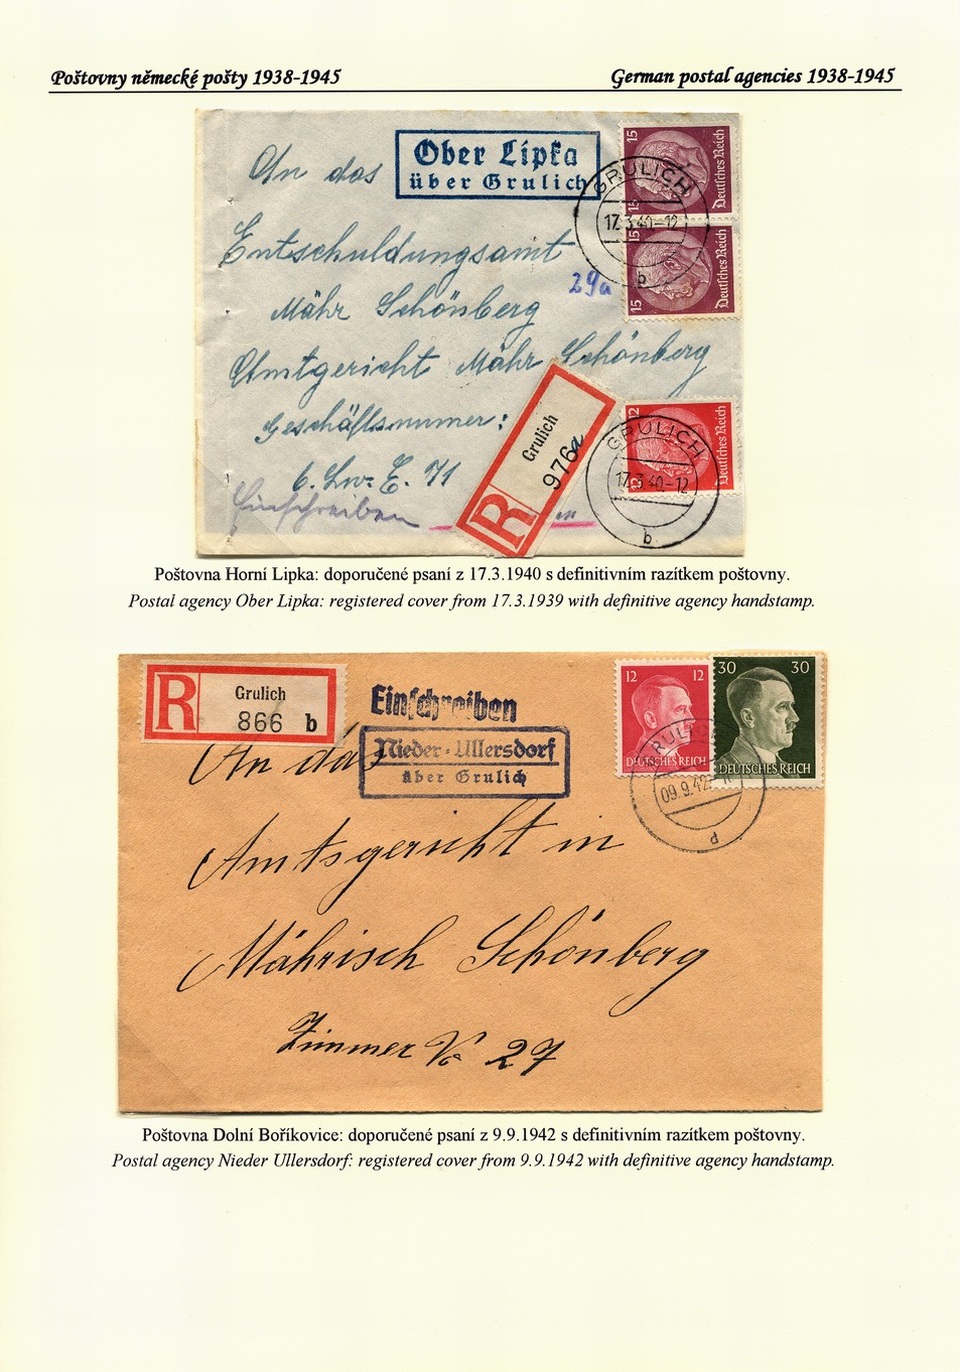 Poštovny německé pošty 1938-1945
German postal agencies 1938-1945
An das
Ober Lipka
über Grulich
15
Deutsches Reich
15
GRULICH
17.3.40-12
b
15
Deutsches Reich
15
Entschuldungsamt
29a
Mähr Schönberg
Amtgericht Mähr Schönberg
Geschäftsnumer:
6. Lw. E. 71
Einschreiben
R
Grulich
976a
12
Deutsches Reich
12
GRULICH
17.3.40-12
b
Poštovna Horní Lipka: doporučené psaní z 17.3.1940 s definitivním razítkem poštovny.
Postal agency Ober Lipka: registered cover from 17.3.1939 with definitive agency handstamp.
R
Grulich
866 b
Einschreiben
12 12
DEUTSCHES REICH
30 30
DEUTSCHES REICH
An das
Nieder-Ullersdorf
über Grulich
09.9.42
d
Amtsgericht in
Mährisch Schönberg
Zimmer No 27
Poštovna Dolní Boříkovice: doporučené psaní z 9.9.1942 s definitivním razítkem poštovny.
Postal agency Nieder Ullersdorf: registered cover from 9.9.1942 with definitive agency handstamp.